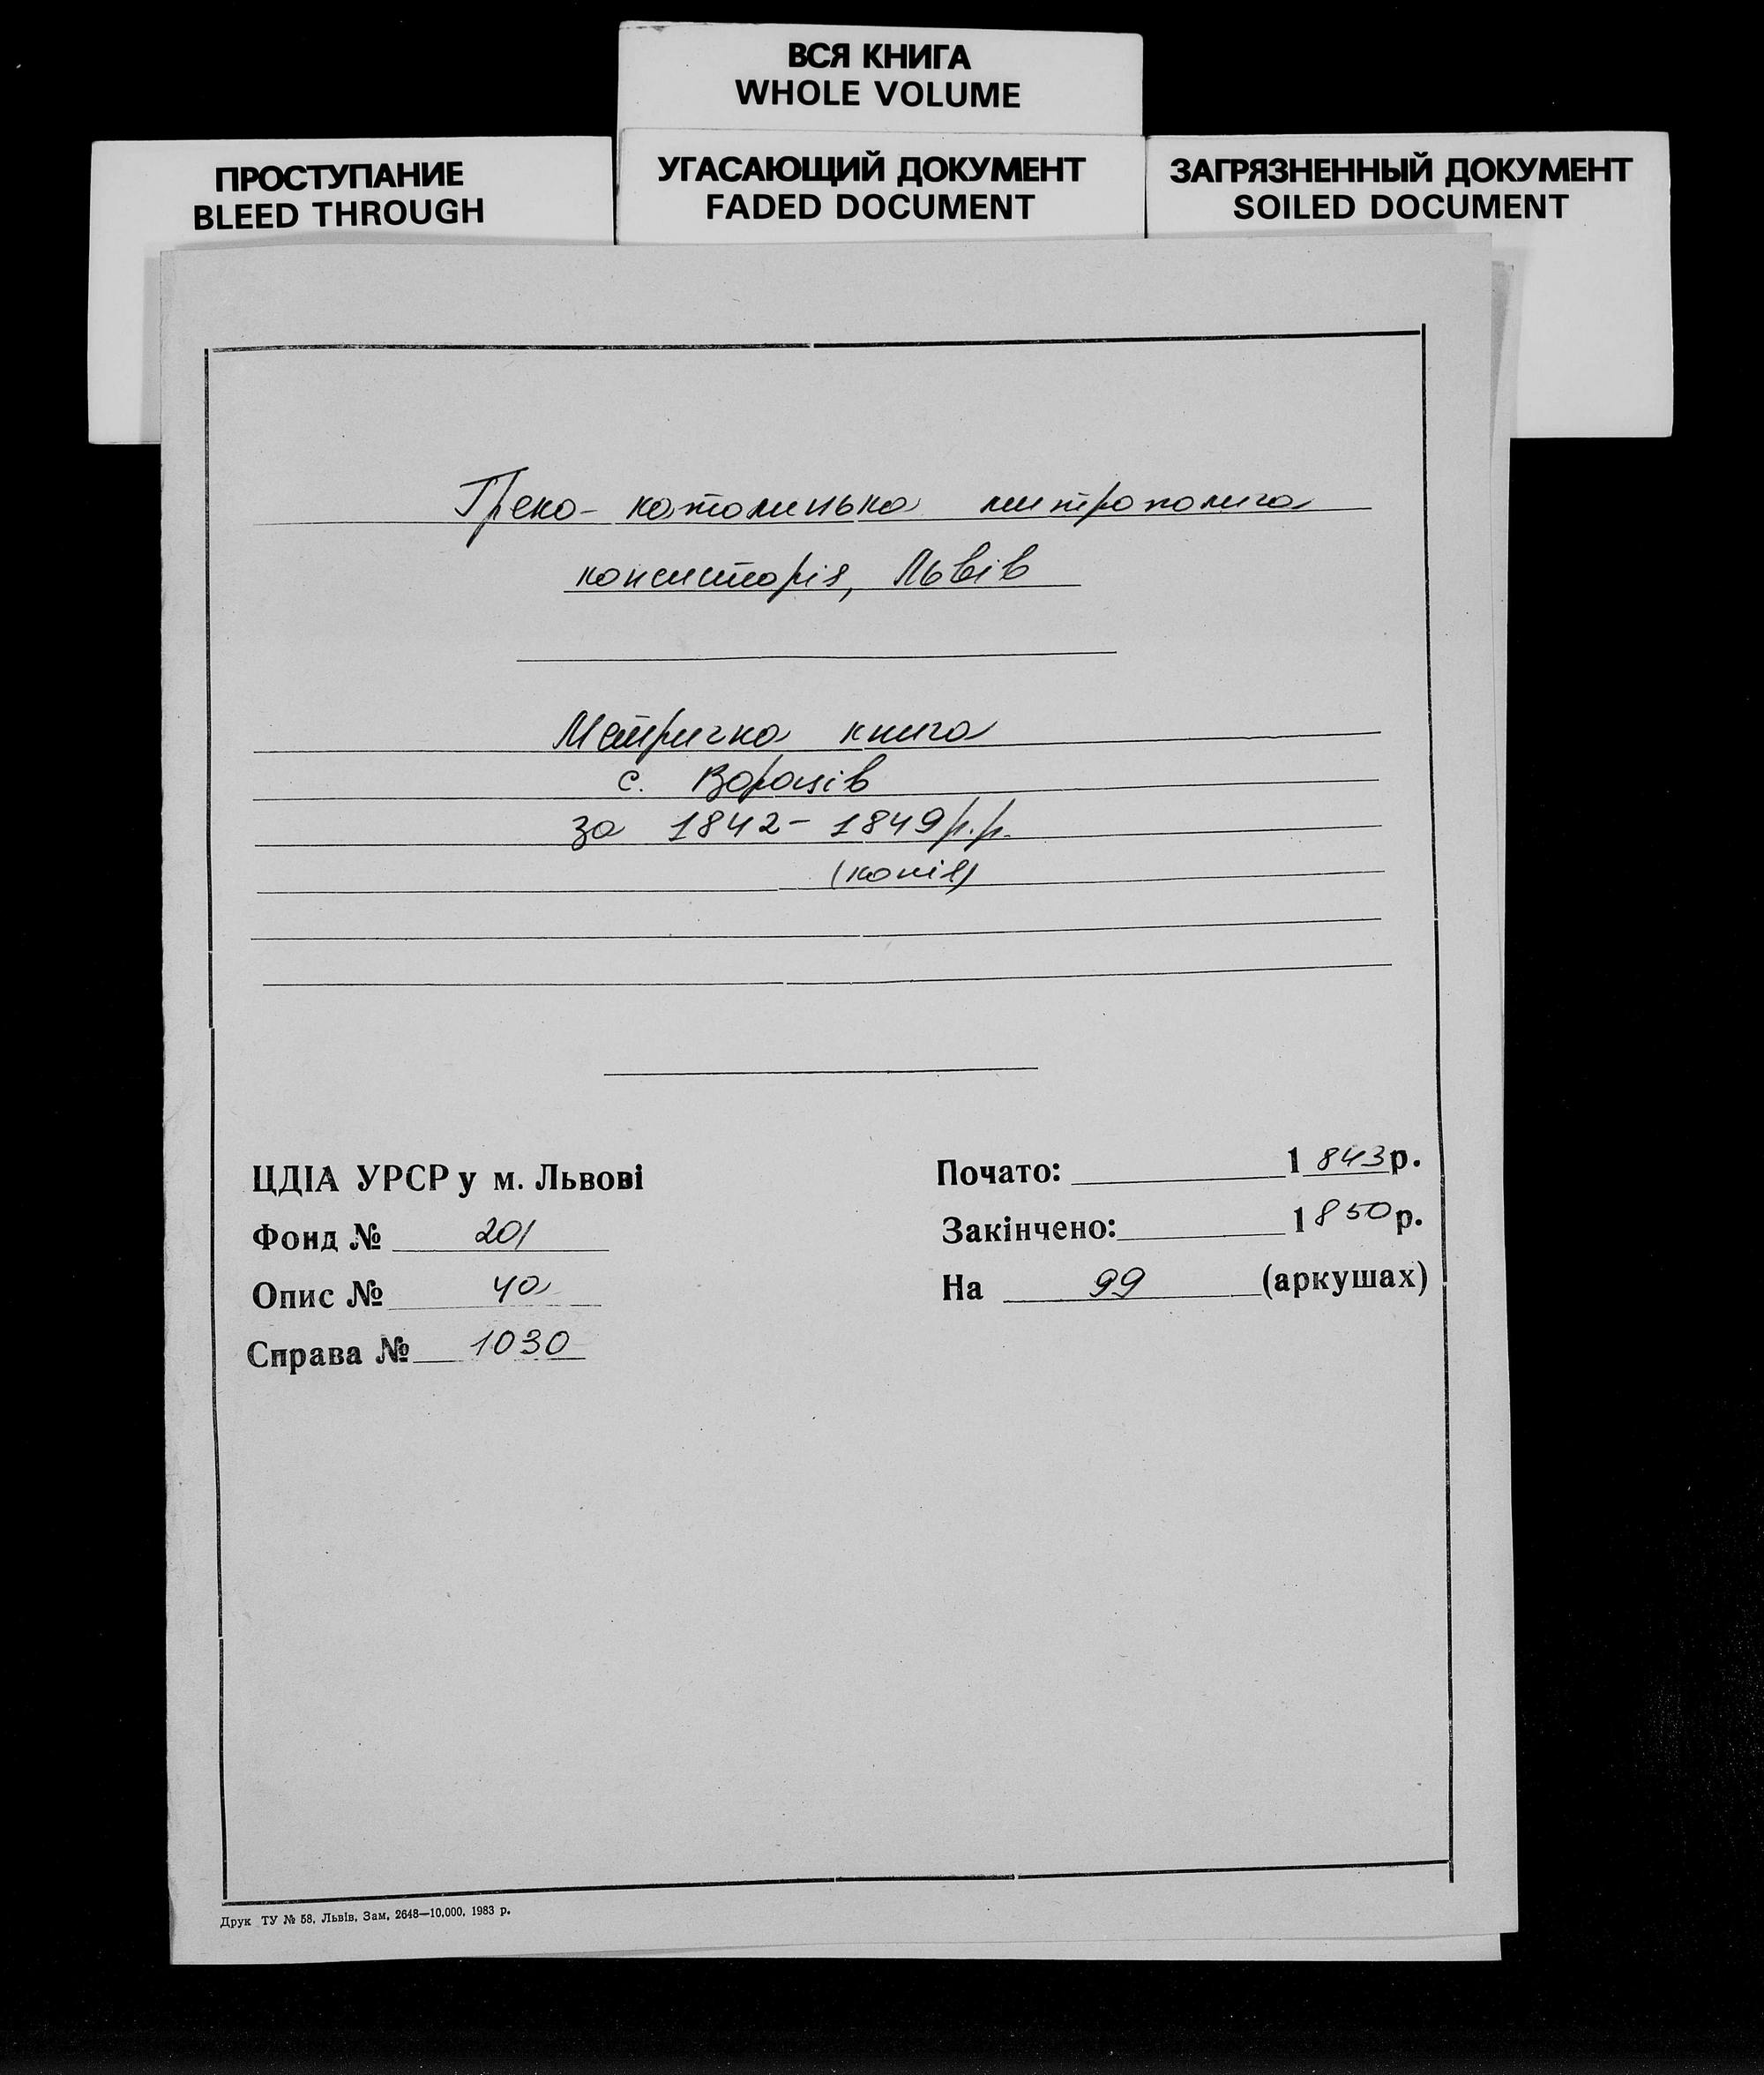 ВСЯ КНИГА
WHOLE VOLUME
ПРОСТУПАНИЕ
BLEED THROUGH
УГАСАЮЩИЙ ДОКУМЕНТ
FADED DOCUMENT
ЗАГРЯЗНЕННЫЙ ДОКУМЕНТ
SOILED DOCUMENT
Греко-католицька митрополича
консисторія, Львів
Метрична книга
с. Вороців
за 1842-1849 р.р.
(копія)
ЦДІА УРСР у м. Львові
Фонд № 201
Опис № 4а
Справа № 1030
Почато: 1843 р.
Закінчено: 1850 р.
На 99 (аркушах)
Друк ТУ № 58, Львів, Зам. 2648—10.000. 1983 р.